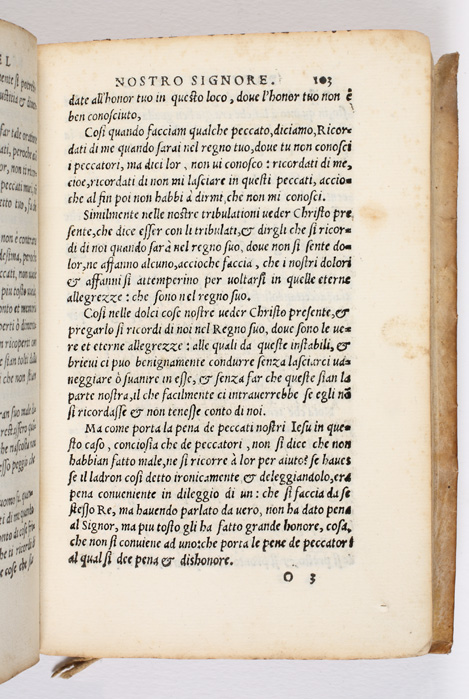 NOSTRO SIGNORE. 103
date all'honor tuo in questo loco, doue l'honor tuo non è
ben conosciuto,
Cosi quando facciam qualche peccato, diciamo, Ricor-
dati di me quando sarai nel regno tuo, doue tu non conosci
i peccatori, ma dici lor, non ui conosco: ricordati di me,
cioe, ricordati di non mi lasciare in questi peccati, accio-
che al fin poi non habbi à dirmi, che non mi conosci.
Similmente nelle nostre tribulationi ueder Christo pre
sente, che dice esser con li tribulati, & dirgli che si ricor-
di di noi quando sarà nel regno suo, doue non si sente do-
lor, ne affanno alcuno, accioche faccia, che i nostri dolori
& affanni si attemperino per uoltarsi in quelle eterne
allegrezze: che sono nel regno suo.
Cosi nelle dolci cose nostre ueder Christo presente, &
pregarlo si ricordi di noi nel Regno suo, doue sono le ue-
re et eterne allegrezze: alle quali da queste instabili, &
brieui ci puo benignamente condurre senza lasciarci ua-
neggiare ò suanire in esse, & senza far che queste sian la
parte nostra, il che facilmente ci intrauerrebbe se egli nõ
si ricordasse & non tenesse conto di noi.
Ma come porta la pena de peccati nostri Iesu in que-
sto caso, conciosia che de peccatori, non si dice che non
habbian fatto male, ne si ricorre à lor per aiuto? se haues
se il ladron cosi detto ironicamente & deleggiandolo, era
pena conueniente in dileggio di un: che si faccia da se
stesso Re, ma hauendo parlato da uero, non ha dato pena
al Signor, ma piu tosto gli ha fatto grande honore, cosa,
che non si conuiene ad uno: che porta le pene de peccatori
al qual si dee pena & dishonore.
O 3